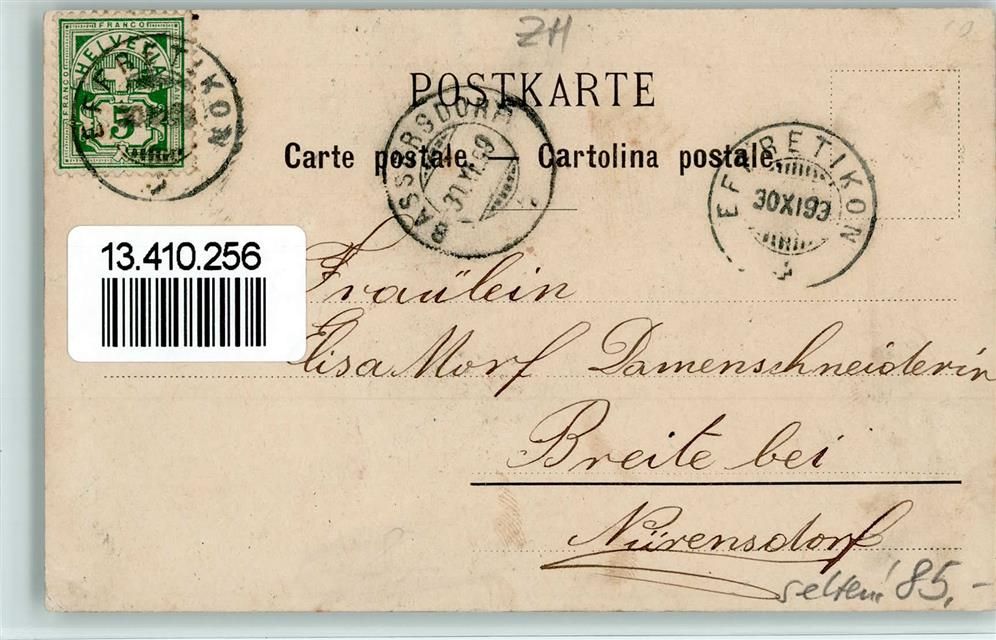 ZH
FRANCO
FRANCO
FRANCO
HELVETIA
5
EFFRETIKON
POSTKARTE
Carte postale. — Cartolina postale.
BASSERSDORF
30 XI 99
EFFRETIKON
30 XI 99
13.410.256
Fraülein
Elisa Morf Damenschneiderin
Breite bei
Nürensdorf
selten! 85,-